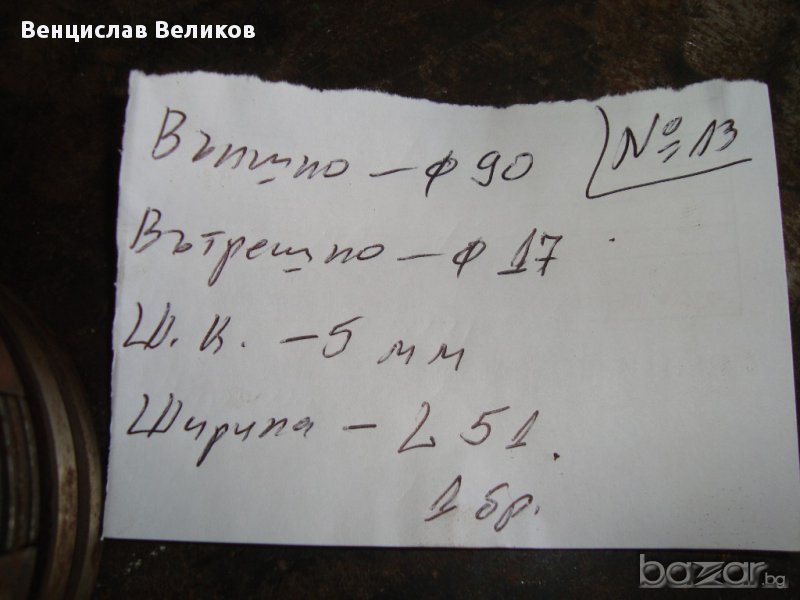 Венцислав Великов
Външно - ф 90
№ 13
Вътрешно - ф 17
Ш.К. - 5 мм
Ширина - L 51.
1 бр.
bazar.bg